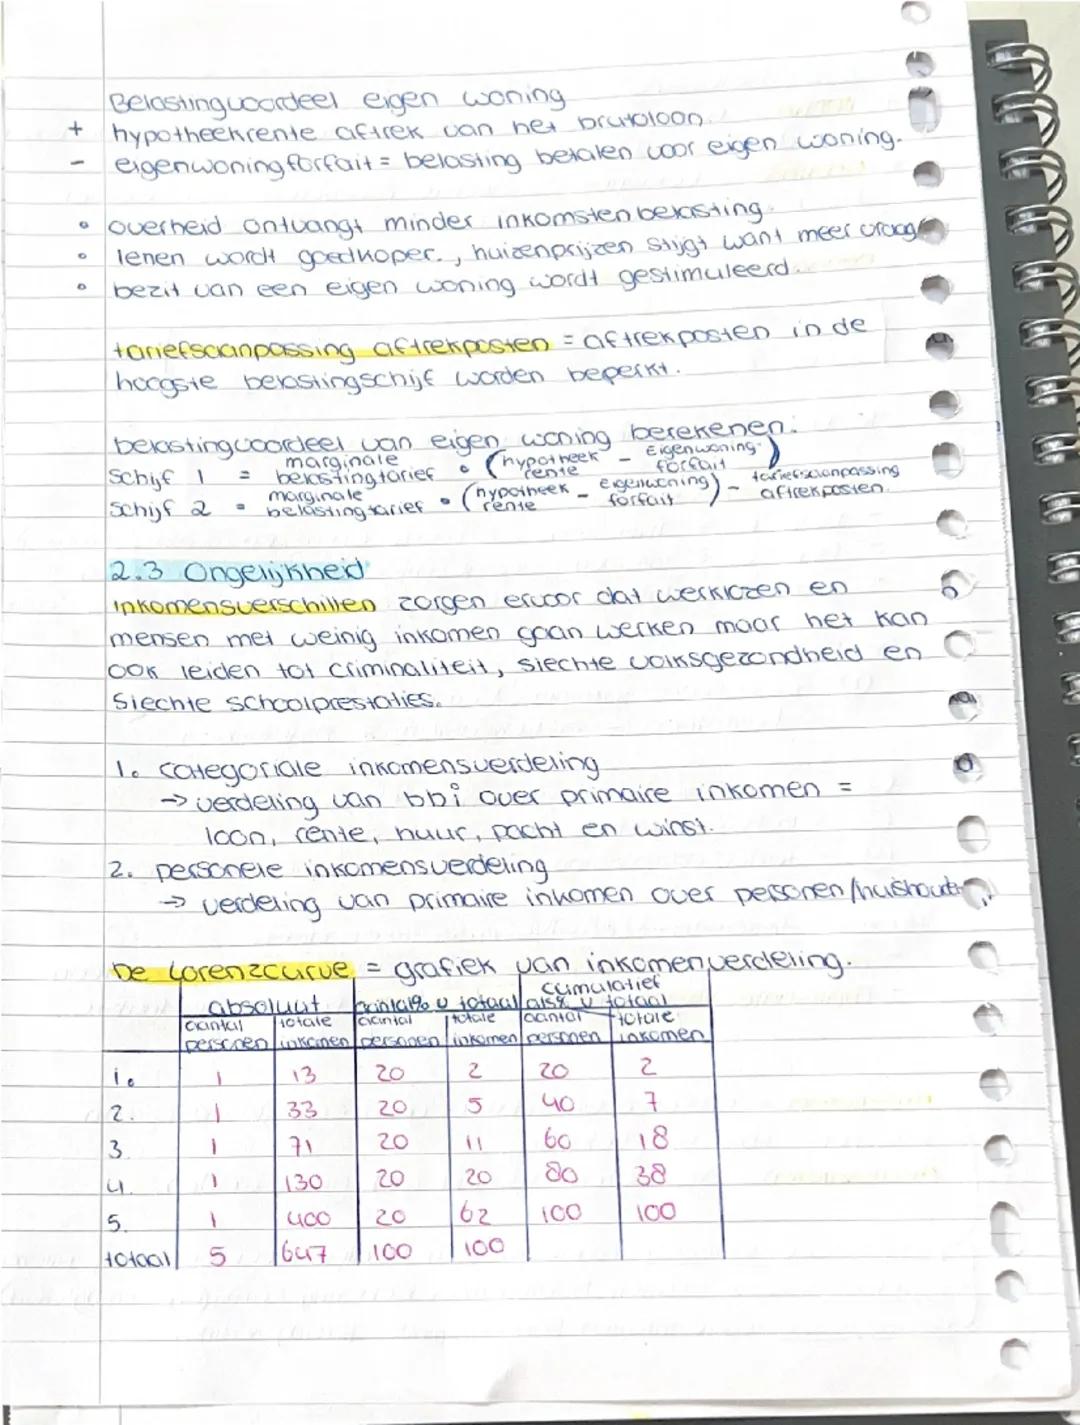 Belastingvoordeel eigen woning
+ hypotheekrente aftrek van het brutoloon.
- eigenwoningforfait = belasting betalen voor eigen woning.
• overheid ontvangt minder inkomstenbelasting.
• lenen wordt goedkoper., huizenprijzen stijgt want meer vraag
• bezit van een eigen woning wordt gestimuleerd.
tariefsaanpassing aftrekposten = aftrekposten in de
hoogste belastingschijf worden beperkt.
belastingvoordeel van eigen woning berekenen:
schijf 1 = marginale belastingtarief • (hypotheek rente - eigenwoning forfait)
schijf 2 = marginale belastingtarief • (hypotheek rente - eigenwoning forfait) - tariefsaanpassing aftrekposten.
2.3 Ongelijkheid
Inkomensverschillen zorgen ervoor dat werklozen en
mensen met weinig inkomen gaan werken maar het kan
ook leiden tot criminaliteit, slechte volksgezondheid en
slechte schoolprestaties.
1. categoriale inkomensverdeling
→ verdeling van bbi over primaire inkomen =
loon, rente, huur, pacht en winst.
2. personele inkomensverdeling
→ verdeling van primaire inkomen over personen/huishouden
De Lorenzcurve = grafiek van inkomenverdeling.
absoluut als % v totaal cumulatief als % v totaal
aantal personen totale inkomen aantal personen totale inkomen aantal personen totale inkomen
1. 1 13 20 2 20 2
2. 1 33 20 5 40 7
3. 1 71 20 11 60 18
4. 1 130 20 20 80 38
5. 1 400 20 62 100 100
totaal 5 647 100 100